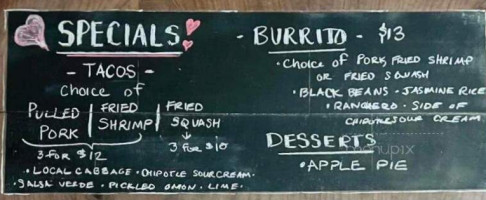 SPECIALS
- TACOS -
Choice of
PULLED PORK | FRIED SHRIMP | FRIED SQUASH
3 for $12
3 for $10
• LOCAL CABBAGE • CHIPOTLE SOUR CREAM •
• SALSA VERDE • PICKLED ONION • LIME •
- BURRITO - $13
• Choice of PORK, FRIED SHRIMP
OR FRIED SQUASH
• BLACK BEANS • JASMINE RICE
• RANCHERO • SIDE OF
CHIPOTLE SOUR CREAM
DESSERTS
• APPLE PIE